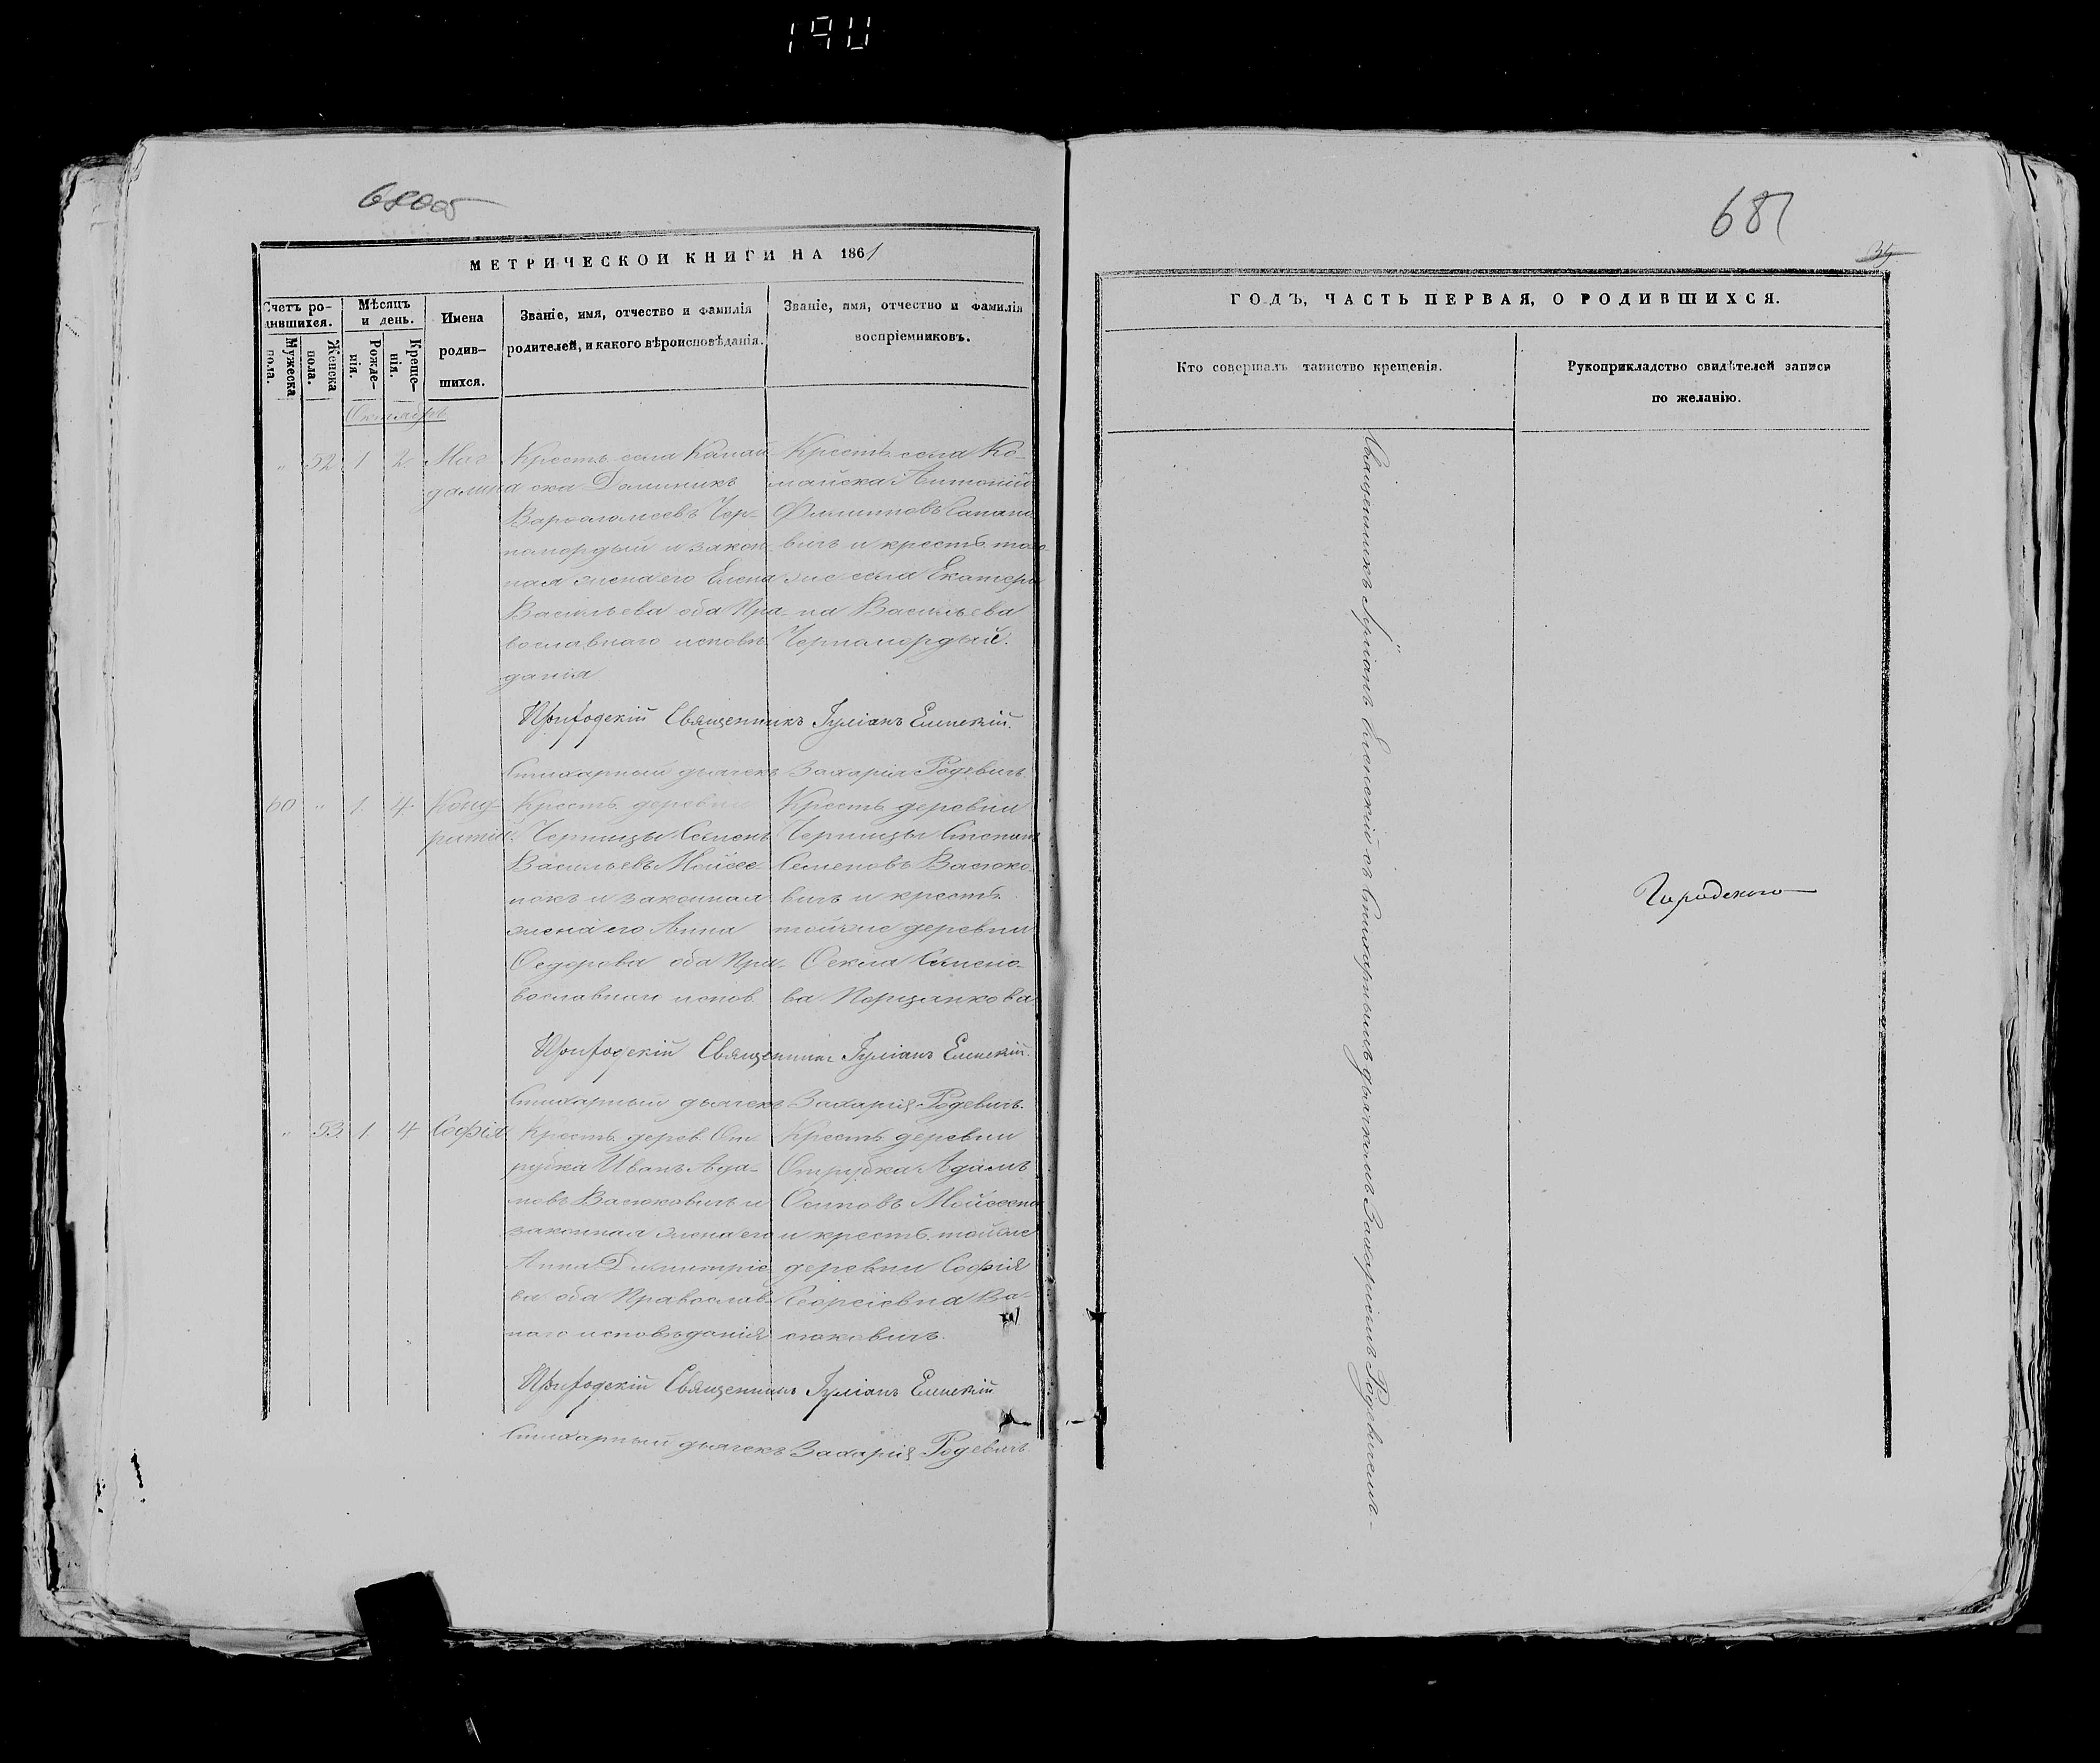 190
680об
МЕТРИЧЕСКОЙ КНИГИ НА 1861
Счетъ ро-
дившихся.
Мѣсяцъ
и день.
Имена
родив-
шихся.
Званіе, имя, отчество и фамилія
родителей, и какого вѣроисповѣданія.
Званіе, имя, отчество и фамилія
воспріемниковъ.
Мужеска
пола.
Женска
пола.
Рожде-
нія.
Креще-
нія.
Октябрь
" 52 1 2 Маг
далина
Крестъ. села Камай
ска Доминикъ
Варфоломеевъ Чер-
номордый и закон-
ная жена его Елена
Васильева оба Пра-
вославнаго исповѣ
данія
Крестъ. села Ко-
майска Антоній
Филиповъ
вичъ и крестъ. того
же села Екатери
на Васильева
Черномордый.
Приходскій Священникъ Іуліанъ Еленскій.
Стихарный дьячекъ Захарія Родевичъ.
60 " 1 4 Конд-
ратій.
Крестъ. деревни
Черницы Семенъ
Васильевъ Мойсее-
нокъ и законная
жена его Анна
Ѳедорова оба Пра-
вославнаго испов.
Крестъ. деревни
Черницы Степанъ
Семеновъ Васюко-
вичъ и крестъ.
тойже деревни
Ѳекла Семено-
ва
Приходскій Священникъ Іуліанъ Еленскій.
Стихарный дьячекъ Захарія Родевичъ.
" 53 1 4 Софія
Крестъ. дерев. От
рубка Иванъ Ада-
мовъ Васюковичъ и
законная жена его
Анна Димитріе
ва оба Православ-
наго исповѣданія
Крестъ. деревни
Отрубка Адамъ
Осиповъ Мойсеенок
и крестъ. тойже
деревни Софія
Ва-
сюковичъ.
Приходскій Священникъ Іуліанъ Еленскій
Стихарный дьячекъ Захарія Родевичъ
681
ГОДЪ, ЧАСТЬ ПЕРВАЯ, О РОДИВШИХСЯ.
Кто совершалъ таинство крещенія.
Рукоприкладство свидѣтелей записи
по желанію.
Священникъ Іуліанъ Еленскій съ Стихарнымъ дьячкомъ Захаріемъ Родевичемъ.
Городского